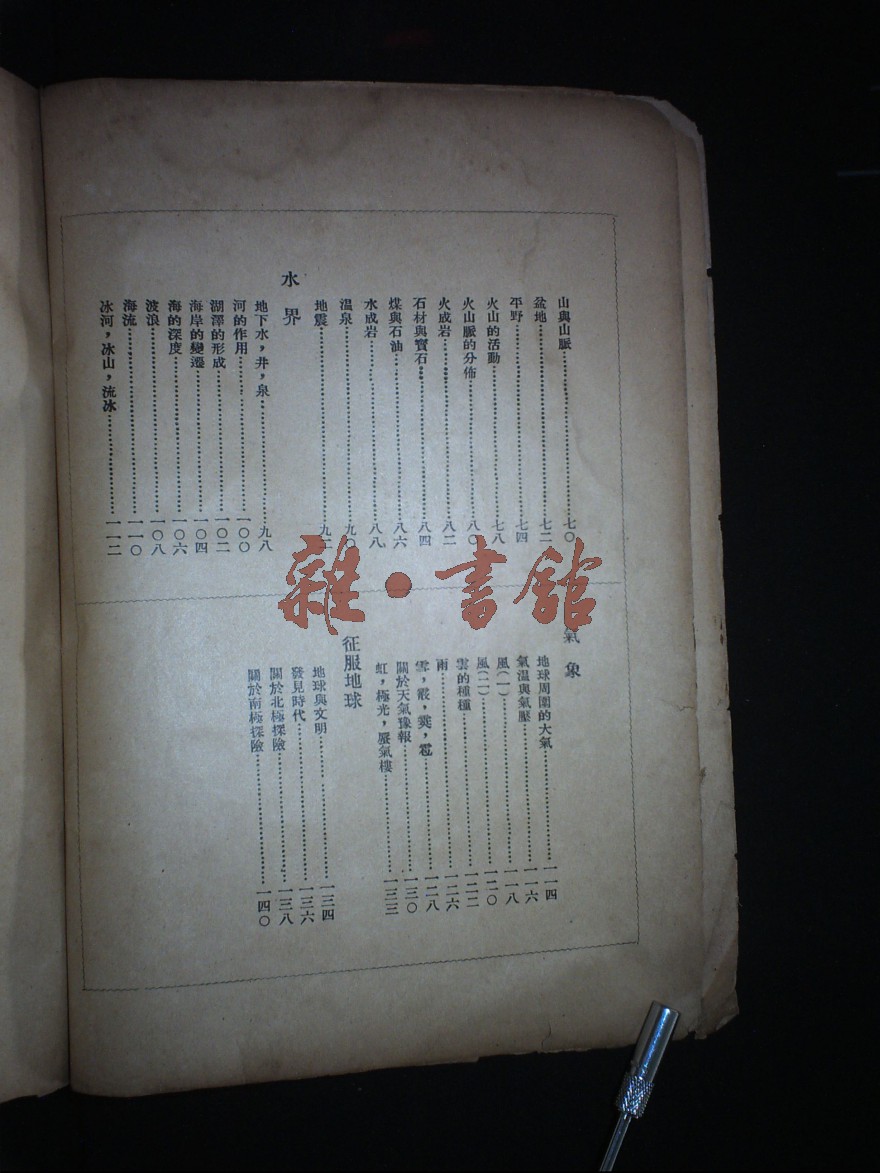 山與山脈……七〇
盆地……七二
平野……七四
火山的活動……七八
火山脈的分佈……八〇
火成岩……八二
石材與寶石……八四
煤與石油……八六
水成岩……八八
温泉……九〇
地震……九二
水界
地下水，井，泉……九八
河的作用……一〇〇
湖澤的形成……一〇二
海岸的變遷……一〇四
海的深度……一〇六
波浪……一〇八
海流……一一〇
冰河，冰山，流冰……一一二
氣象
地球周圍的大氣……一一四
氣温與氣壓……一一六
風（一）……一一八
風（二）……一二〇
雲的種種……一二二
雨……一二六
雪，霰，霙，雹……一二八
關於天氣豫報……一三〇
虹，極光，蜃氣樓……一三三
征服地球
地球與文明……一三四
發見時代……一三六
關於北極探險……一三八
關於南極探險……一四〇
雜·書館